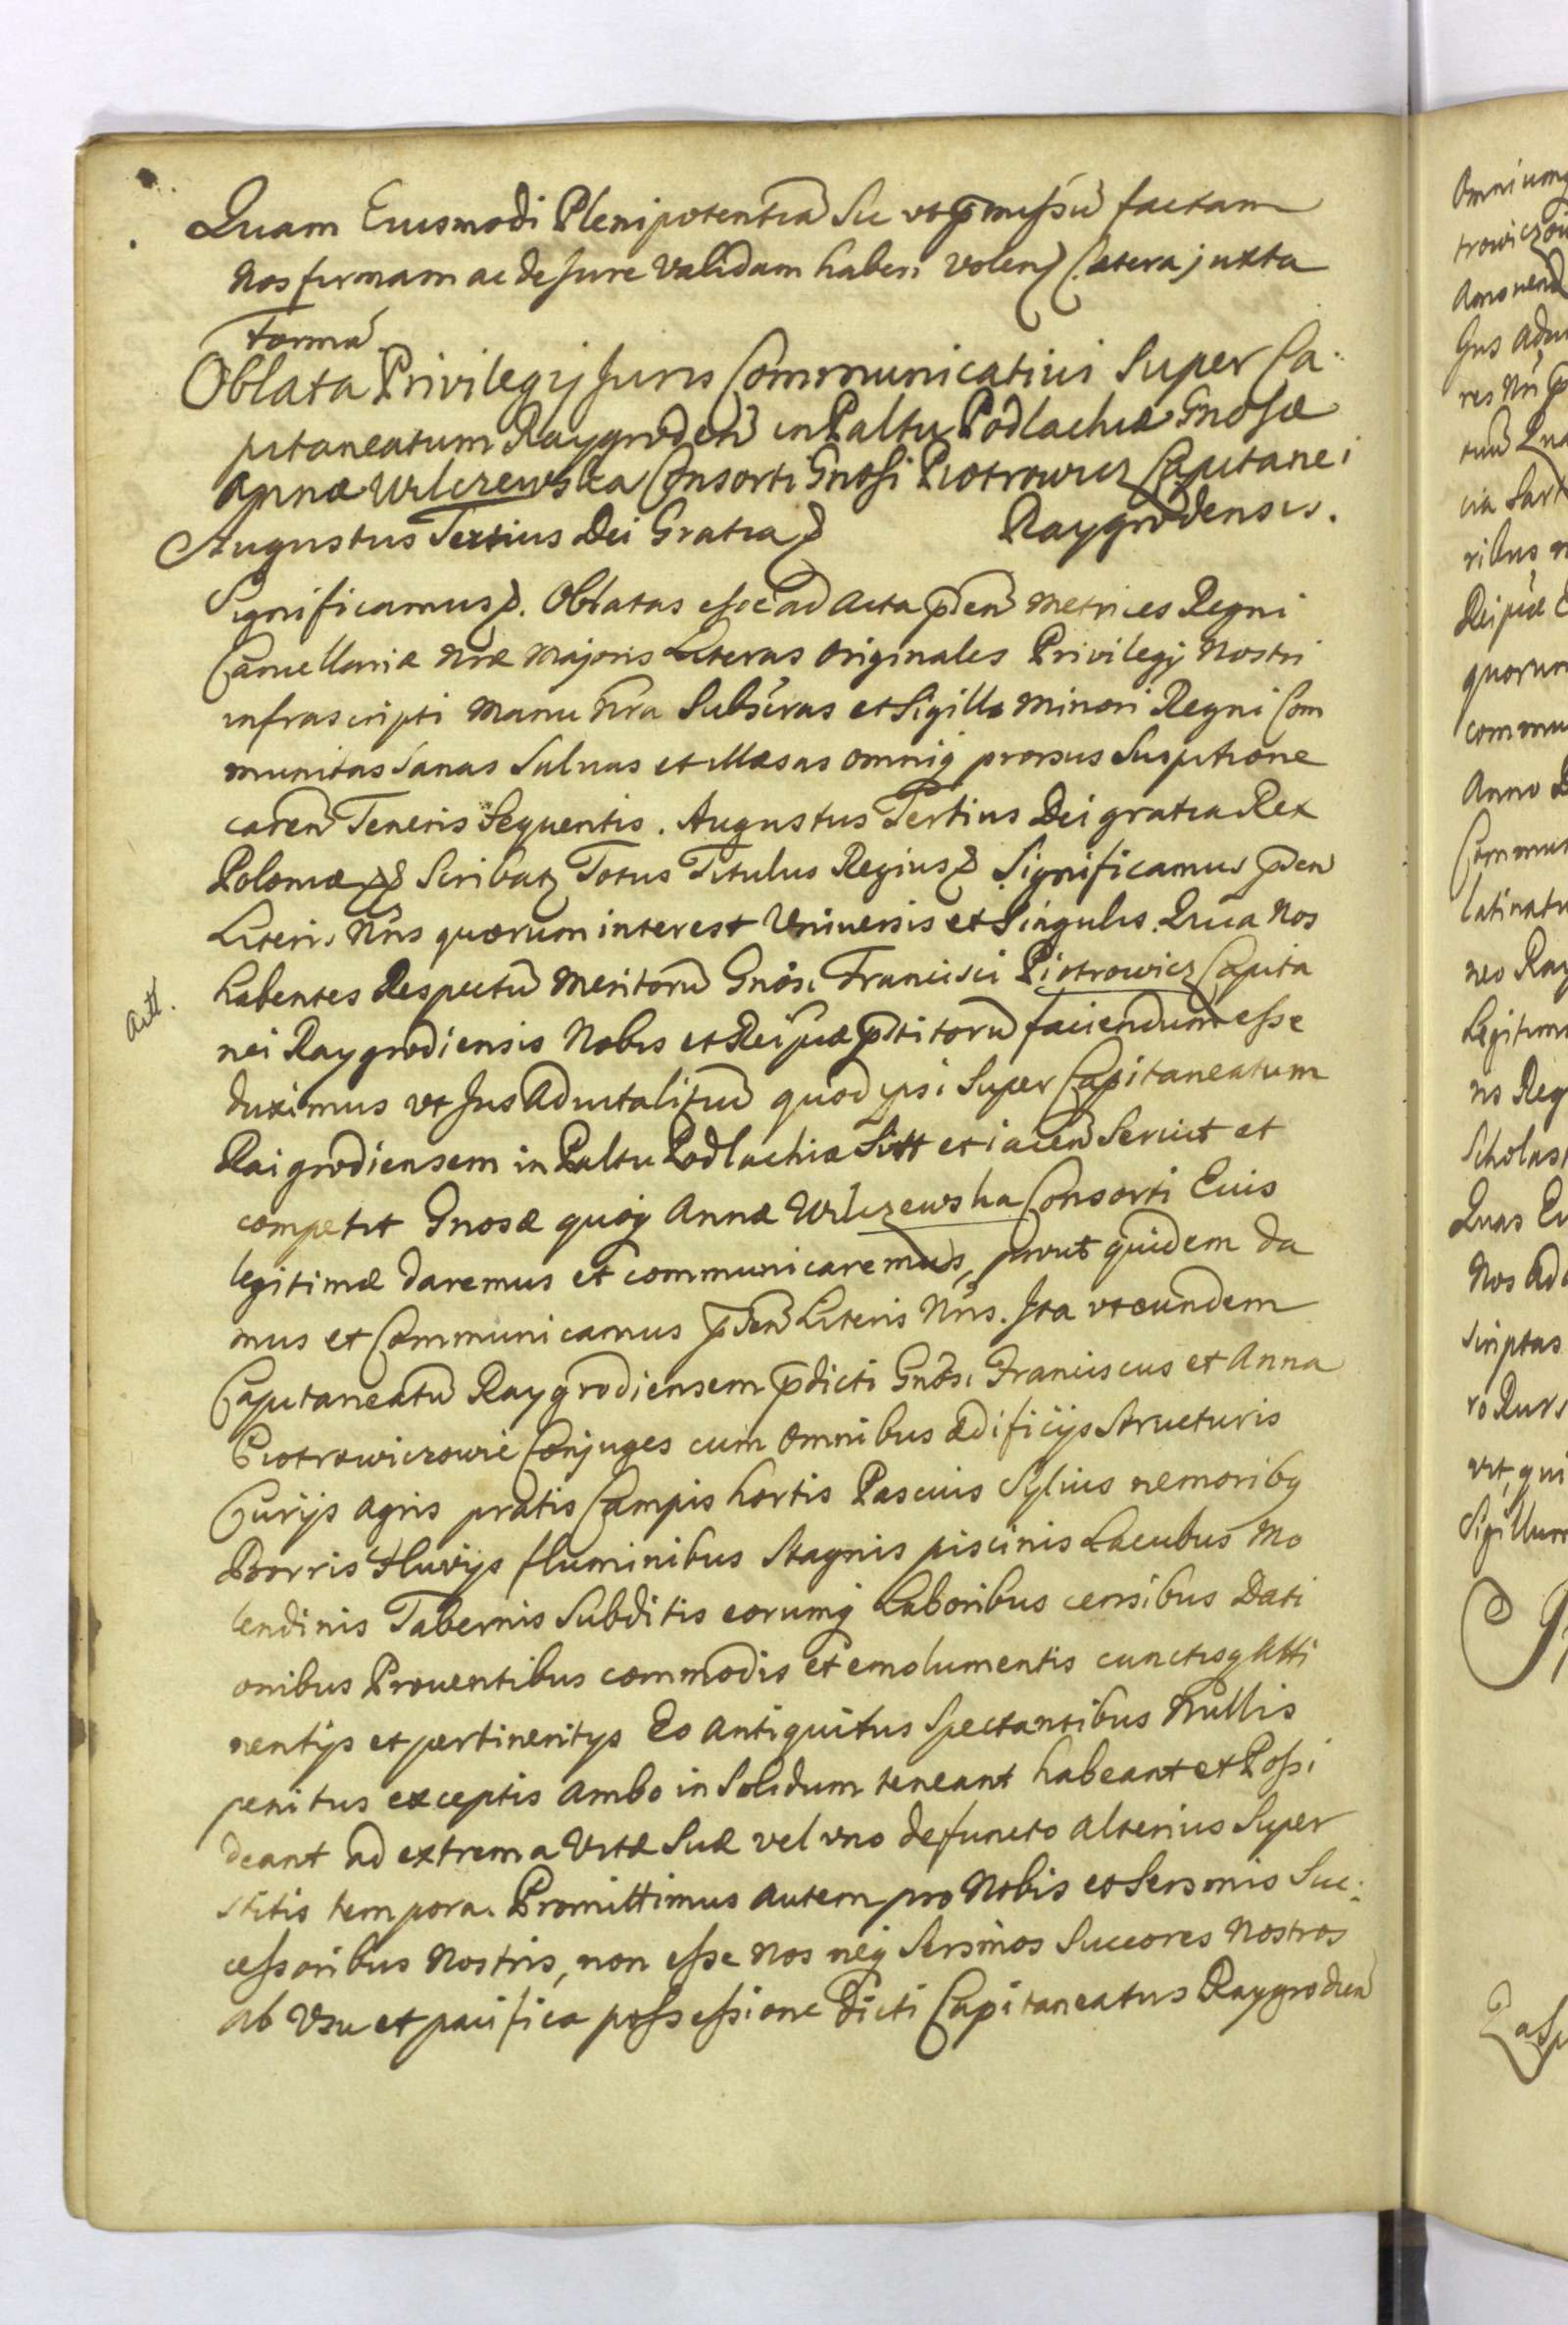 Quam Eiusmodi Plenipotentiã Sic vt p̃missũ factam
Nos firmam ac de Jure Validam haberi volen̄ Cætera juxta
formã.
Oblata Privilegij Juris Communicativi Super Ca-
pitaneatum Raygroden̄ in Paltu Podlachiæ Gnosæ
Annæ Wilczewska Consorti Gnosi Piotrowicz Capitanei
Raygrodensis.
Augustus Tertius Dei Gratia
Significamus. Oblatas esse ad Acta p̃sen̄ Metrices Regni
Cancellariæ Nræ Majoris Literas Originales Privilegij Nostri
infrascripti Manu Nra Subscras et Sigillo Minori Regni Com
munitas Sanas Saluas et illæsas omniq prorsus Suspitione
caren̄ Tenoris Sequentis. Augustus Tertius Dei gratia Rex
Poloniæ Scribatz Totus Titulus Regius Significamus p̃sen
Literis Nris quorum interest Vniuersis et Singulis. Quia Nos
habentes Respectũ Meritorũ Gnosi Francisci Piotrowicz Capita
Att.
nei Raygrodiensis Nobis et Reipuæ p̃stitorũ faciendum esse
duximus vt Jus Aduitalitiũ quod ipsi Super Capitaneatum
Raigrodiensem in Paltu Podlachiæ Sitt et iacen̄ Seruit et
competit Gnosæ quoq Annæ Wilczewska Consorti Eius
legitimæ daremus et communicaremus, prout quidem da
mus et Communicamus p̃sen̄ Literis Nris. Ita vt eundem
Capitaneatũ Raygrodiensem p̃dicti Gnosi Franciscus et Anna
Piotrowiczowie Conjuges cum omnibus ædificijs Structuris
Curijs agris pratis Campis hortis Pascuis Syluis nemoribq
Borris Fluvijs fluminibus Stagnis piscinis Lacubus Mo
lendinis Tabernis Subditis eorumq Laboribus censibus Dati
onibus Prouentibus commodis et emolumentis cunctisq Atti
nentijs et pertinentijs Eo antiquitus Spectantibus Nullis
penitus exceptis ambo in Solidum teneant habeant et Possi
deant ad extrema Vitæ Suæ vel vno defuncto alterius Super
stitis tempora. Promittimus autem pro Nobis et Sersmis Suc-
cessoribus Nostris, non esse Nos neq Sersmos Succores Nostros
ab Vsu et pacifica possessione dicti Capitaneatus Raygrodien